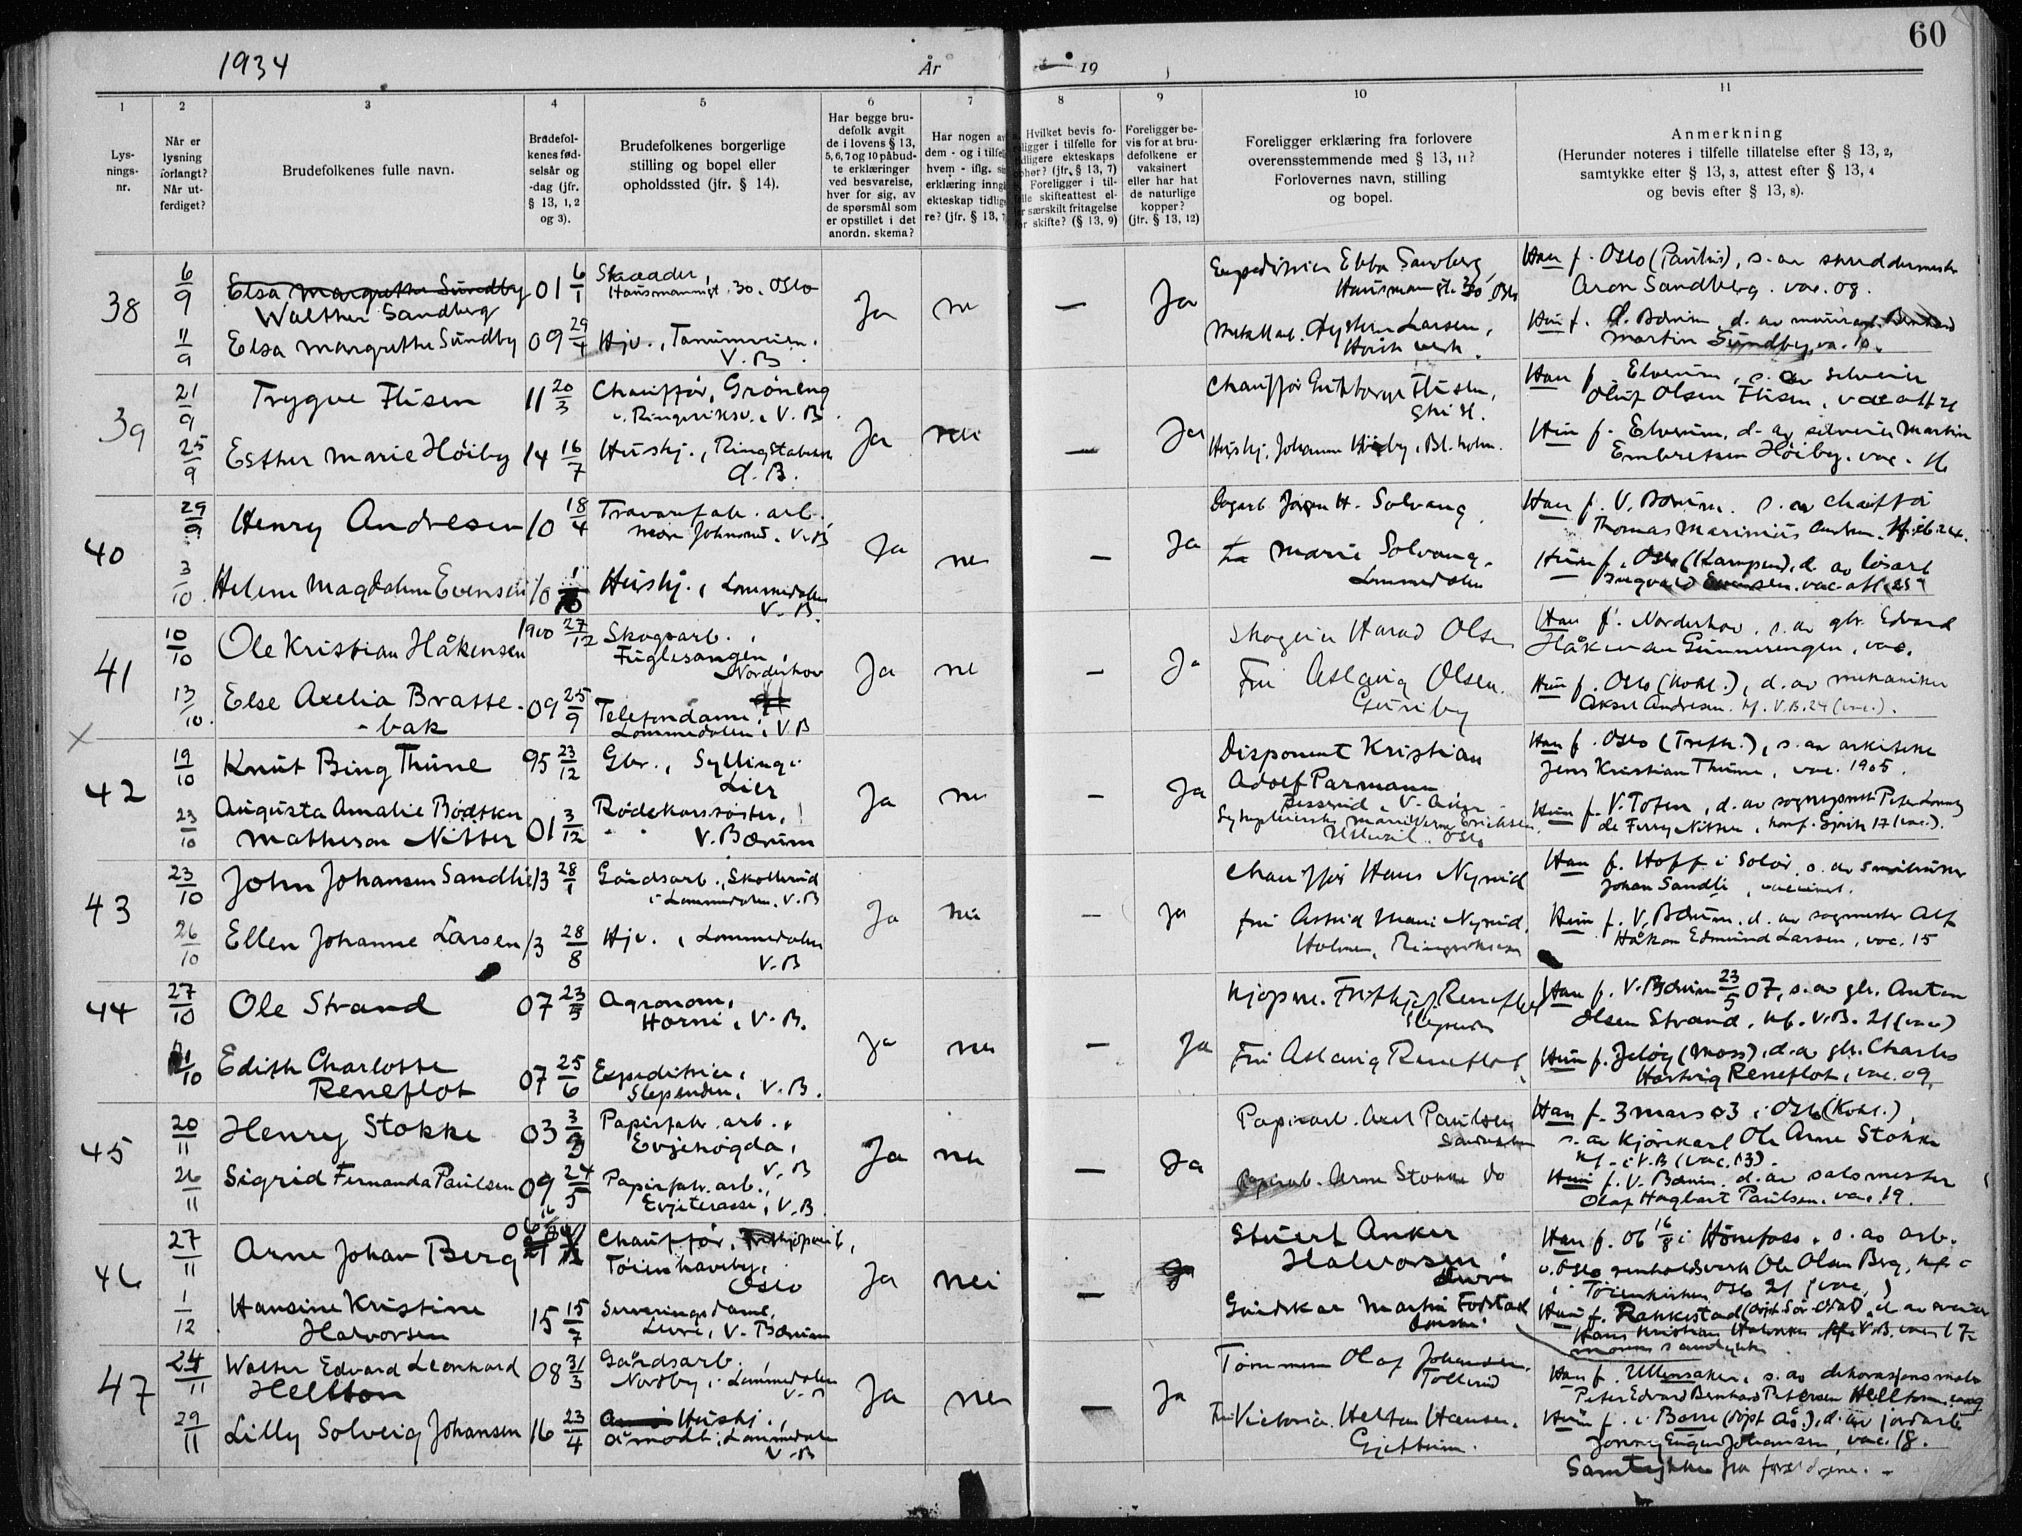 60
1934
År
19
1
2
3
4
5
6
7
8
9
10
11
Lys-
nings-
nr.
Når er
lysning
forlangt?
Når ut-
ferdiget?
Brudefolkenes fulle navn.
Brudefol-
kenes fød-
selsår og
-dag (jfr.
§ 13, 1, 2
og 3).
Brudefolkenes borgerlige
stilling og bopel eller
opholdssted (jfr. § 14).
Har begge bru-
defolk avgit
de i lovens § 13,
5, 6, 7 og 10 påbud-
te erklæringer
ved besvarelse,
hver for sig, av
de spørsmål som
er opstillet i det
anordn. skema?
Har nogen av
dem - og i tilfelle
hvem - iflg.
erklæring inngått
ekteskap tidlige-
re? (jfr. § 13, 7
Hvilket bevis fo-
religger i tilfelle for
tidligere ekteskaps
ophør? (jfr. § 13, 7)
Foreligger i til-
felle skifteattest el-
ler særskilt fritagelse
for skifte? (§ 13, 9)
Foreligger be-
vis for at bru-
defolkene er
vaksinert
eller har hat
de naturlige
kopper?
(jfr. § 13, 12)
Foreligger erklæring fra forlovere
overensstemmende med § 13, 11?
Forlovernes navn, stilling
og bopel.
Anmerkning
(Herunder noteres i tilfelle tillatelse efter § 13, 2,
samtykke efter § 13, 3, attest efter § 13, 4
og bevis efter § 13, 8).
38
6/9
Elsa Margrethe Sundby
Walther Sandberg
01 6/1
Skrædder,
Hausmannsgt. 30. Oslo
Ja
nei
—
Ja
Expeditrice Ebba Sandberg
Hausmansgt. 30 Oslo
Han f. Oslo (Paulus), s. av skreddermester
Aron Sandberg. vac. 09.
11/9
Elsa Margrethe Sundby
09 29/4
Hjv., Tanumveien.
V. B.
Øystein Larsen,
Høvik verk.
Hun f. Ø. Bærum d. av
Martin Sundby,
39
21/9
Trygve Flisen
11 20/3
Chauffør, Grøneng
Ringeriksv., V. B.
Ja
nei
—
Ja
Chauffør Flisen,
Han f. Elverum, s. av
Oluf Olsen Flisen, vac att 21
25/9
Esther Marie Høiby
14 16/7
Hushj., Ringstabekk
Ø. B.
Hushj. Johanne Høiby, Bl. holm.
Hun f. Elverum, d. av Martin
Embretsen Høiby. vac. 16
40
29/9
Henry Andresen
10 18/4
Travarefab. arb.
V. B
Ja
nei
—
Ja
Solvang
Han f. V. Bærum. s. av chauffør
Thomas Marinius
3/10
Helene Magdalene Evensen
10 1/10
Hushj., Lommedalen
V. B.
Marie Solvang.
Lommedalen
Hun f. Oslo (Kampen), d. av løsarb
Ingvald Evensen. vac. att (25)
41
10/10
Ole Kristian Håkensen
1900 27/12
Skogsarb.,
Fuglesangen,
Norderhov
Ja
nei
—
Ja
Olsen
Han f. Norderhov, s. av gbr. Edvard
13/10
Else Axelia Bratte-
- bak
09 25/9
Telefondame,
Lommedalen, V. B
Fru Aslaug Olsen.
Guriby
Hun f. Oslo (Kohl.), d. av mekaniker
Aksel Andresen. kf. V. B. 24 (vac.).
x
42
19/10
Knut Bing Thune
95 23/12
Gbr., Sylling i
Lier
Ja
nei
—
Ja
Disponent Kristian
Adolf Parmann
Han f. Oslo (Trefk.), s. av arkitekt
Jens Kristian Thune, vac. 1905.
23/10
Augusta Amalie Bødtker
Matheson Nitter
01 3/12
Rødekorssøster,
V. Bærum
Ullevål. Oslo
Hun f. V. Toten, d. av sogneprest
de Ferry Nitter, konf. 17 (vac.).
43
23/10
John Johansen Sandlie
13 28/1
Gårdsarb., Skollerud
i Lommedalen. V. B
Ja
nei
—
Ja
Chauffør Hans Nyrud
Han f. Hoff i Solør, s. av
Johan Sandli, vaccinert.
26/10
Ellen Johanne Larsen
13 28/8
Hjv., Lommedalen
V. B
Fru Astrid Marie Nyrud,
Hun f. V. Bærum. d. av sagmester Alf
Håkon Edmund Larsen, vac. 15
44
27/10
Ole Strand
07 23/5
Agronom,
Horni, V. B.
Ja
nei
—
Ja
Kjøpm. Fritkjof Reneflot
Slependen
Han f. V. Bærum 23/5 07, s. av gbr. Anton
Olsen Strand, kf. V. B. 21 (vac)
31/10
Edith Charlotte
Reneflot
07 25/6
Expeditrice,
Slependen, V. B.
Fru Aslaug Reneflot
Hun f. Jeløy (Moss), d. av gbr. Charles
Hartvig Reneflot, vac. 09.
45
20/11
Henry Stokke
03 3/3
Papirfabr. arb.,
Evjehøgda,
V. B
Ja
nei
—
Ja
Papirarb. Axel Paulsen
Sandvika
Han f. 3 mars 03 i Oslo (Kohl.),
s. av kjørekarl Ole Arne Stokke
kf. i V. B (vac. 13).
26/11
Sigrid Fernanda Paulsen
09 24/5
Papirfabr. arb.,
Evjeterasse, V. B.
Papirarb. Arne Stokke do
Hun f. V. Bærum. d. av salsmester
Olaf Hagbart Paulsen. vac. 19.
46
27/11
Arne Johan Berg
06 16/8
Chauffør,
Tøienhaveby,
Oslo
Ja
nei
—
Ja
Stuert Anker
Halvorsen,
Han f. 06 16/8 i Hønefoss, s. av arb.
v. Oslo renholdsverk Ole Olsen Berg, kf. i
Tøienkirken Oslo 21 (vac.)
1/12
Hansine Kristine
Halvorsen
15 15/7
Serveringsdame,
V. Bærum
Gårdskar Martin Fodstad
Hun f. Rakkestad
Hans Kristian Halvorsen kf. V. B. vac 17
47
24/11
Walter Edvard Leonhard
Hellton
08 31/3
Gårdsarb.,
Nordby i Lommedalen
V. B
Ja
nei
—
Ja
Tømmerm Olaf Johansen.
Tollerud
Han f. Ullensaker, s. av dekorasjonsmaler
Peter Edvard Bernhard Petersen Hellton. vac
29/11
Lilly Solveig Johansen
16 23/4
Hushj.,
Åmodt i Lommedalen
V. B
Fru Victoria Helton Hansen.
Gjettum.
Hun f. i Borre (døpt Ås), d. av jordarb
Johansen, vac. 18.
Samtykke fra foreldrene. -